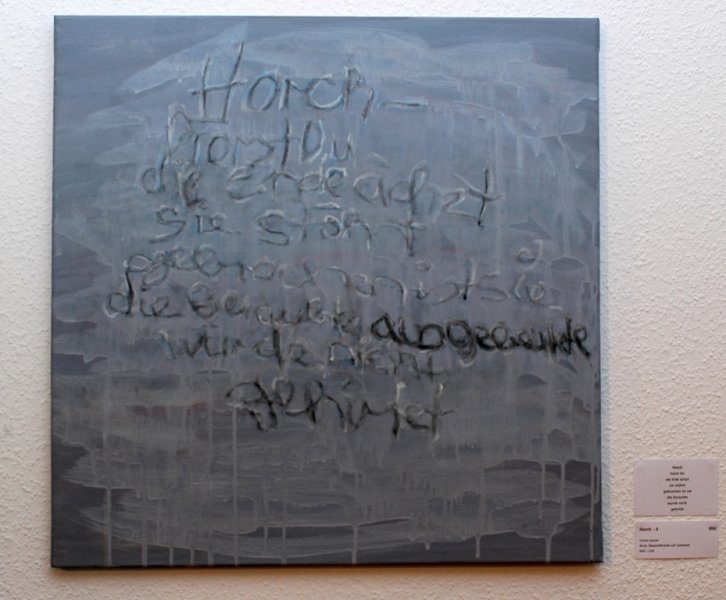 Horch –
hörst Du
die Erde ächzt
sie stöhnt
gebrochen ist sie
die Beraubte ausgebeutete
wurde nicht
gehütet
Horch
hörst Du
die Erde ächzt
sie stöhnt
gebrochen ist sie
die beraubte
wurde nicht
gehütet
Horch - II